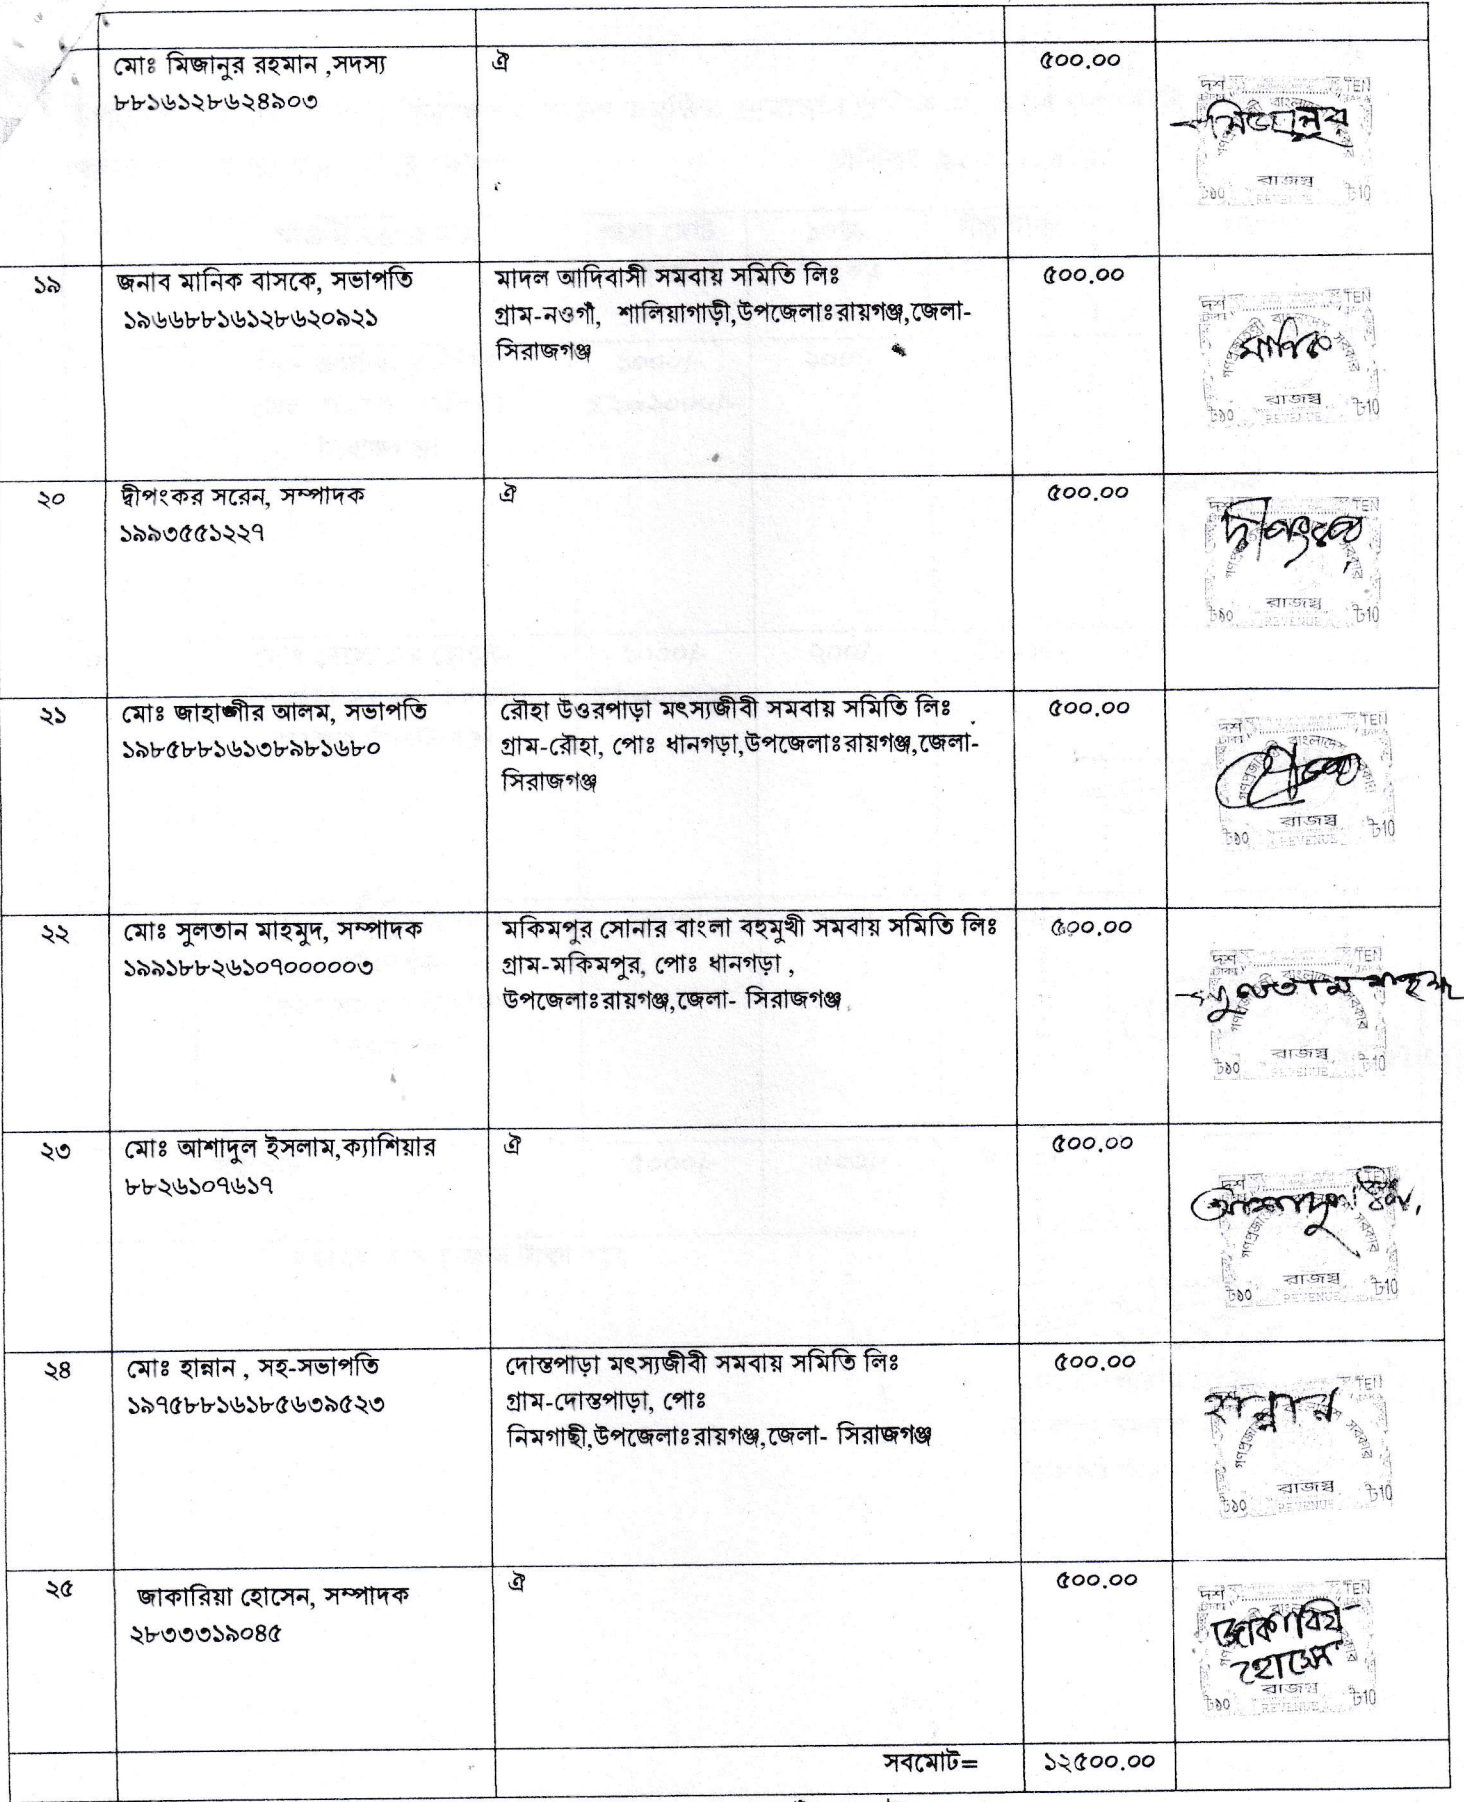 মোঃ মিজানুর রহমান ,সদস্য
৮৮১৬১২৮৬২৪৯০৩
ঐ
৫০০.০০
দশ TEN
মিজানুর
রাজস্ব
৳১০ REVENUE ৳10
১৯
জনাব মানিক বাসকে, সভাপতি
১৯৬৬৮৮১৬১২৮৬২০৯২১
মাদল আদিবাসী সমবায় সমিতি লিঃ
গ্রাম-নওগাঁ, শালিয়াগাড়ী,উপজেলাঃরায়গঞ্জ,জেলা-
সিরাজগঞ্জ
৫০০.০০
দশ TEN
মানিক
রাজস্ব
৳১০ REVENUE ৳10
২০
দ্বীপংকর সরেন, সম্পাদক
১৯৯৩৫৫১২২৭
ঐ
৫০০.০০
দশ TEN
রাজস্ব
৳১০ REVENUE ৳10
২১
মোঃ জাহাঙ্গীর আলম, সভাপতি
১৯৮৫৮৮১৬১৩৮৯৮১৬৮০
রৌহা উওরপাড়া মৎস্যজীবী সমবায় সমিতি লিঃ
গ্রাম-রৌহা, পোঃ ধানগড়া,উপজেলাঃরায়গঞ্জ,জেলা-
সিরাজগঞ্জ
৫০০.০০
দশ TEN
রাজস্ব
৳১০ REVENUE ৳10
২২
মোঃ সুলতান মাহমুদ, সম্পাদক
১৯৯১৮৮২৬১০৭০০০০০৩
মকিমপুর সোনার বাংলা বহুমুখী সমবায় সমিতি লিঃ
গ্রাম-মকিমপুর, পোঃ ধানগড়া ,
উপজেলাঃরায়গঞ্জ,জেলা- সিরাজগঞ্জ
৫০০.০০
দশ TEN
সুলতান মাহমুদ
রাজস্ব
৳১০ REVENUE ৳10
২৩
মোঃ আশাদুল ইসলাম,ক্যাশিয়ার
৮৮২৬১০৭৬১৭
ঐ
৫০০.০০
দশ
রাজস্ব
৳১০ REVENUE ৳10
২৪
মোঃ হান্নান , সহ-সভাপতি
১৯৭৫৮৮১৬১৮৫৬৩৯৫২৩
দোস্তপাড়া মৎস্যজীবী সমবায় সমিতি লিঃ
গ্রাম-দোস্তপাড়া, পোঃ
নিমগাছী,উপজেলাঃরায়গঞ্জ,জেলা- সিরাজগঞ্জ
৫০০.০০
TEN
হান্নান
রাজস্ব
৳১০ REVENUE ৳10
২৫
জাকারিয়া হোসেন, সম্পাদক
২৮৩৩৩১৯০৪৫
ঐ
৫০০.০০
দশ TEN
জাকারিয়া
হোসেন
রাজস্ব
৳১০ REVENUE ৳10
সবমোট=
১২৫০০.০০